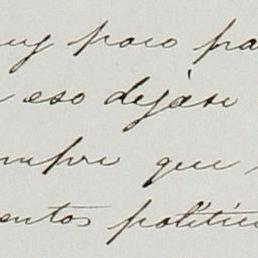 uy poco pa
eso dejase
mpre que
entos polític